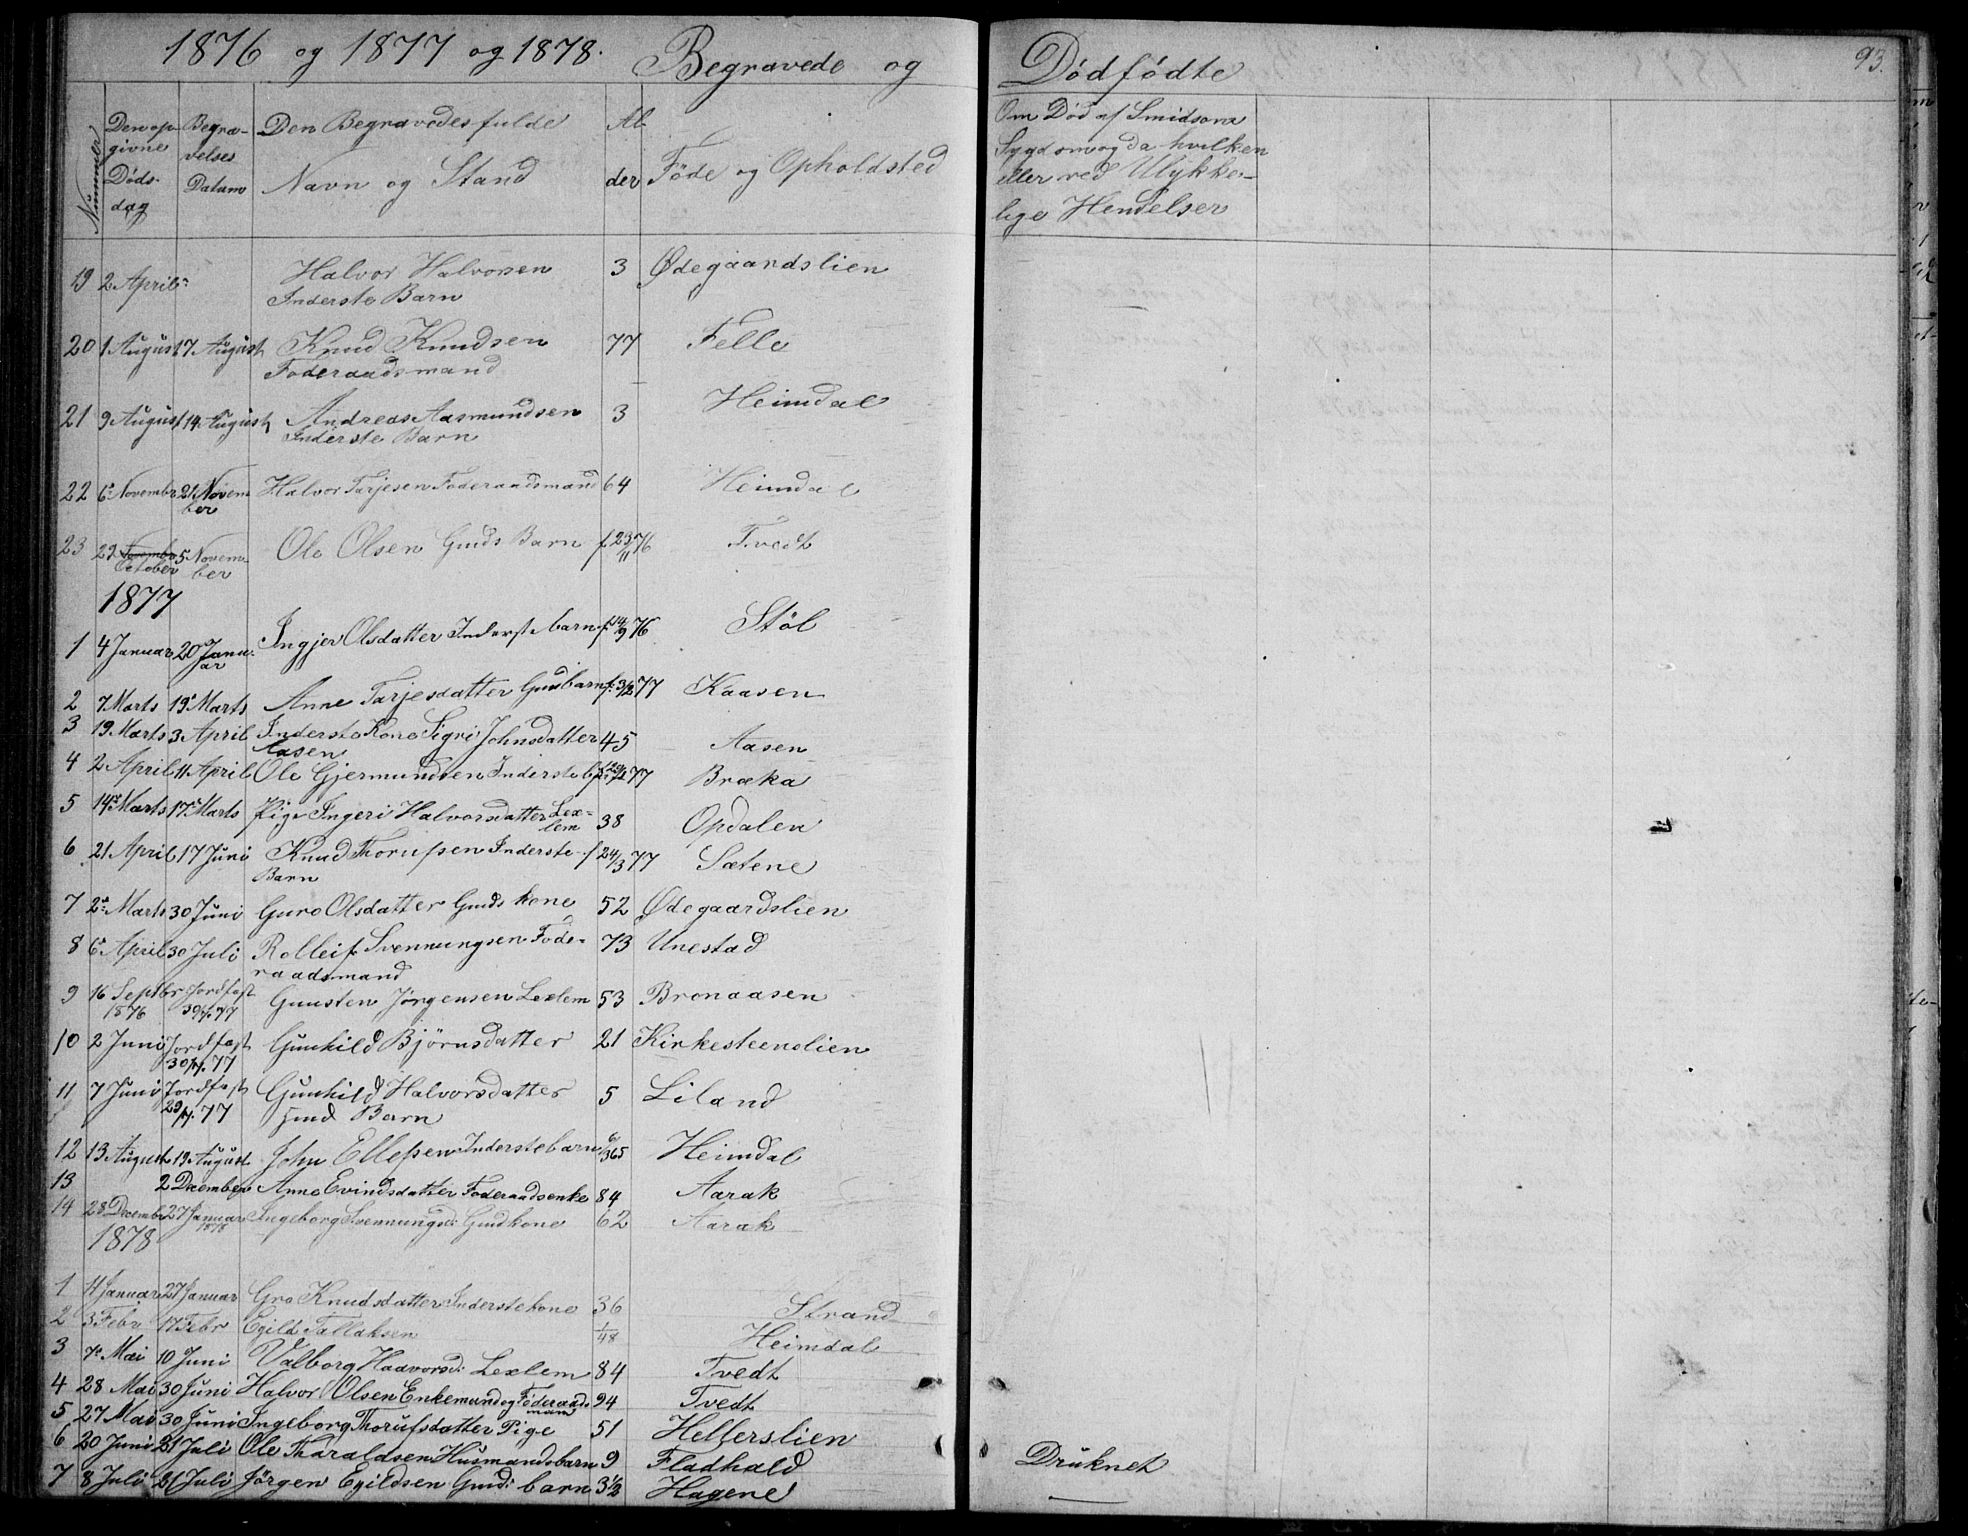 1876 og 1877 og 1878. Begravede og Dødfødte 93.
Nummer
Den op-
givne
Døds-
dag
Begra-
velses
Datum
Den Begravedes fulde
Navn og Stand
Al-
der
Føde og Opholdsted
Om Død af Smidsom
Sygdom og da hvilken
eller ved Ulykke-
lige Hendelser
19 2 April Halvor Halvorsen 3 Ødegaardslien
Inderste Barn
20 1 August 7 August Knud Knudsen 77 Felle
Foderaadsmand
21 9 August 14 August Andreas Aasmundsen 3 Heimdal
Inderste Barn
22 6 Novembr 21 Novem- Halvor Tarjesen Foderaadsmand 64 Heimdal
ber
23 29 Novembr 5 Novem- Ole Olsen Gmds Barn f 23/11 76 Tvedt
October ber
1877
1 4 Januar 20 Janu- Ingjer Olsdatter Inderste barn f. 14/9 76 Støl
ar
2 7 Marts 19 Marts Anne Tarjesdatter Gmdbarn f. 3/2 77 Kaasen
3 19 Marts 3 April Inderste Kone Sigri Johnsdatter 45 Aasen
Aasen
4 2 April 11 April Ole Gjermundsen Inderste 77 Bræka
5 14 Marts 17 Marts Pige Ingeri Halvorsdatter Lex- 38 Opdalen
lem
6 21 April 17 Juni Knud Thorufsen Inderste f 24/3 77 Sætene
Barn
7 2 Marts 30 Juni Guro Olsdatter Gmds kone 52 Ødegaardslien
8 6 April 30 Juli Rolleif Svennungsen Fode- 73 Unestad
raadsmand
9 16 Septbr Jordfast Gunsten Jørgensen Lexlem 53 Bronaasen
1876 77
10 2 Juni Jordfast Gunhild Bjørnsdatter 21 Kirkesteenslien
77
11 7 Juni Jordfast Gunhild Halvorsdatter 5 Liland
77 Gmd Barn
12 13 August 19 August John Ellefsen Inderstebarn 6/365 Heimdal
13 2 December Anne Evindsdatter Foderaadsenke 84 Aarak
14 28 Decembr 27 Januar Ingeborg Svennungsd: Gmdkone 62 Aarak
1878
1878
1 14 Januar 27 Januar Gro Knudsdatter Inderstekone 36 Strand
2 3 Febr 17 Febr Egild Tallaksen 1/48 Heimdal
3 7 Mai 10 Juni Valborg Haavorsd: Lexlem 84 Tvedt
4 28 Mai 30 Juni Halvor Olsen Enkemand og Føderaads 94 Tvedt
mand
5 27 Mai 30 Juni Ingeborg Thorufsdatter Pige 51 Helferslien
6 20 Juni 21 Juli Ole Tharaldsen Husmandsbarn 9 Fladhald Druknet
7 8 Juli 21 Juli Jörgen Egildsen Gmd: barn 3 1/2 Hagene